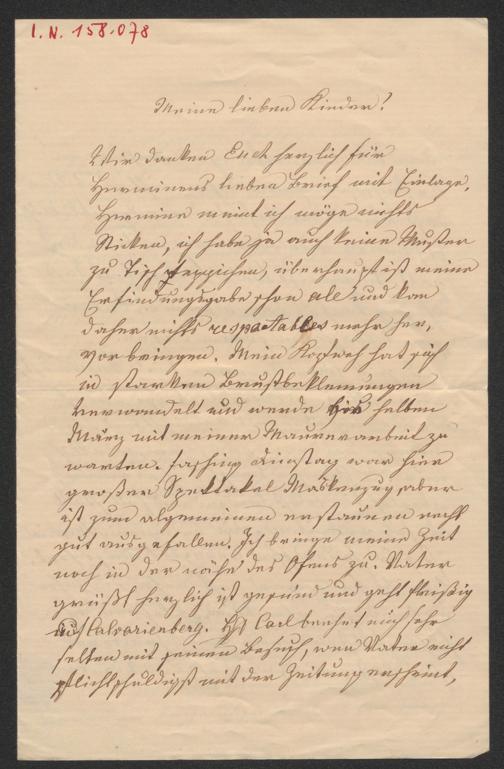 I. N. 158.078
Meine lieben Kinder!
Wir danken Euch herzlich für
Herminens lieben Brief mit Einlage,
Hermine meint ich möge nichts
Sticken, ich habe ja auch keine Muster
zu Tisch teppichen, überhaupt ist meine
Erfindungsgabe schon all und kan
daher nichts respectables mehr her,
vor bringen. Mein Kopfweh hat sich
in starken Brustbeklemungen
verwandelt und werde bis halben
März mit meiner Maurerarbeit zu
warten. Fasching Dinstag war hier
großer Spektakel Maskenzug, aber
ist zum algemeinen erstaunen recht
gut ausgefallen. Ich bringe meine Zeit
noch in der nähe des Ofens zu. Vater
grüßt herzlich ist gesund und geht fleißig
auf Calvarienberg. Carl beehrt mich sehr
selten mit seinen Besuch, wen Vater nicht
pflichtschuldigst mit der Zeitung erscheint,